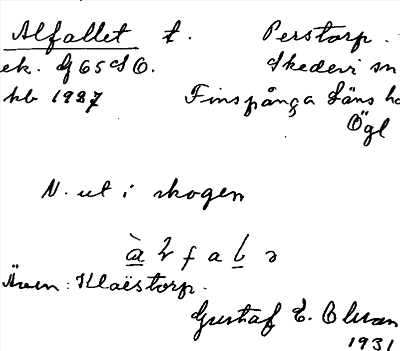 Alfallet t. Perstorp.
ek. G 65 SO. Skedevi sn
hb 1937 Finspånga läns
Ögl
N. ut i skogen
Även: Klaëstorp.
Gustaf E.
1931